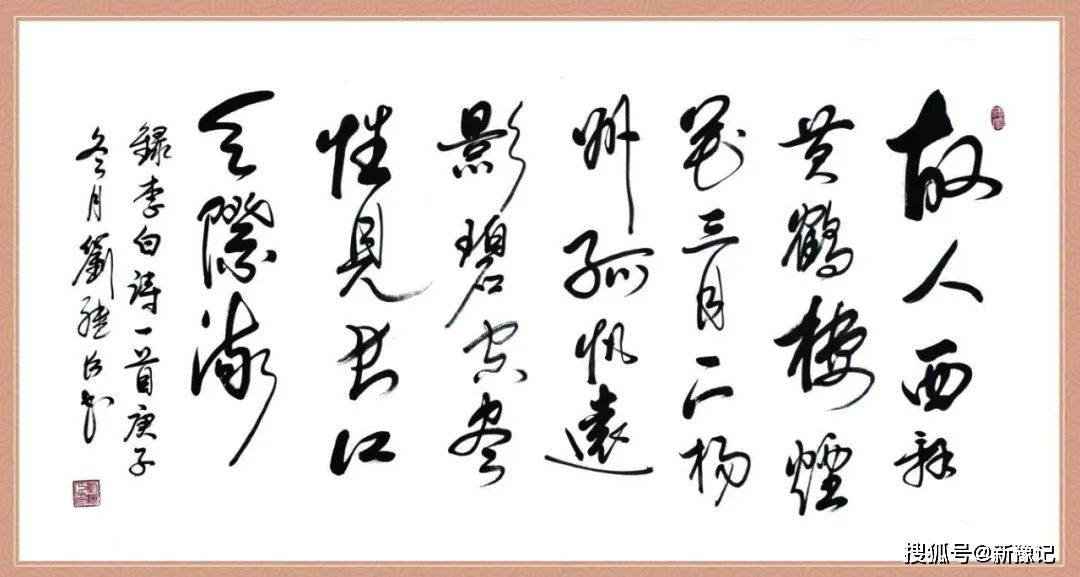 故人西辞
黄鶴楼煙
花三月下杨
州孤帆遠
影碧空尽
惟見长江
天際流
録李白诗一首庚子
冬月劉书
搜狐号@新豫记